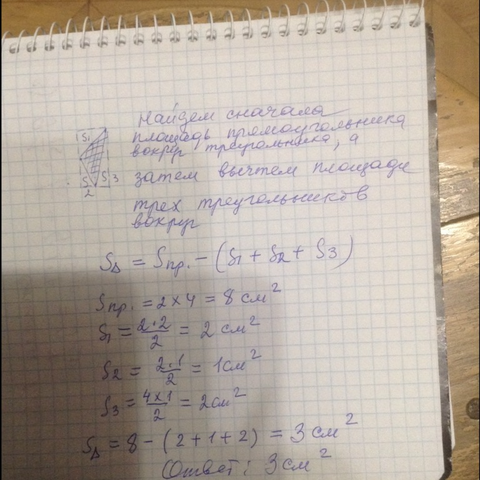 Найдем сначала
площадь прямоугольника
вокруг треугольника, а
затем вычтем площади
трех треугольников
вокруг
S1
S S 3
2
SΔ = Sпр. - (S1 + S2 + S3)
Sпр. = 2 × 4 = 8 см²
S1 = 2·2/2 = 2 см²
S2 = 2·1/2 = 1см²
S3 = 4×1/2 = 2см²
SΔ = 8 - (2+1+2) = 3 см²
Ответ: 3 см²